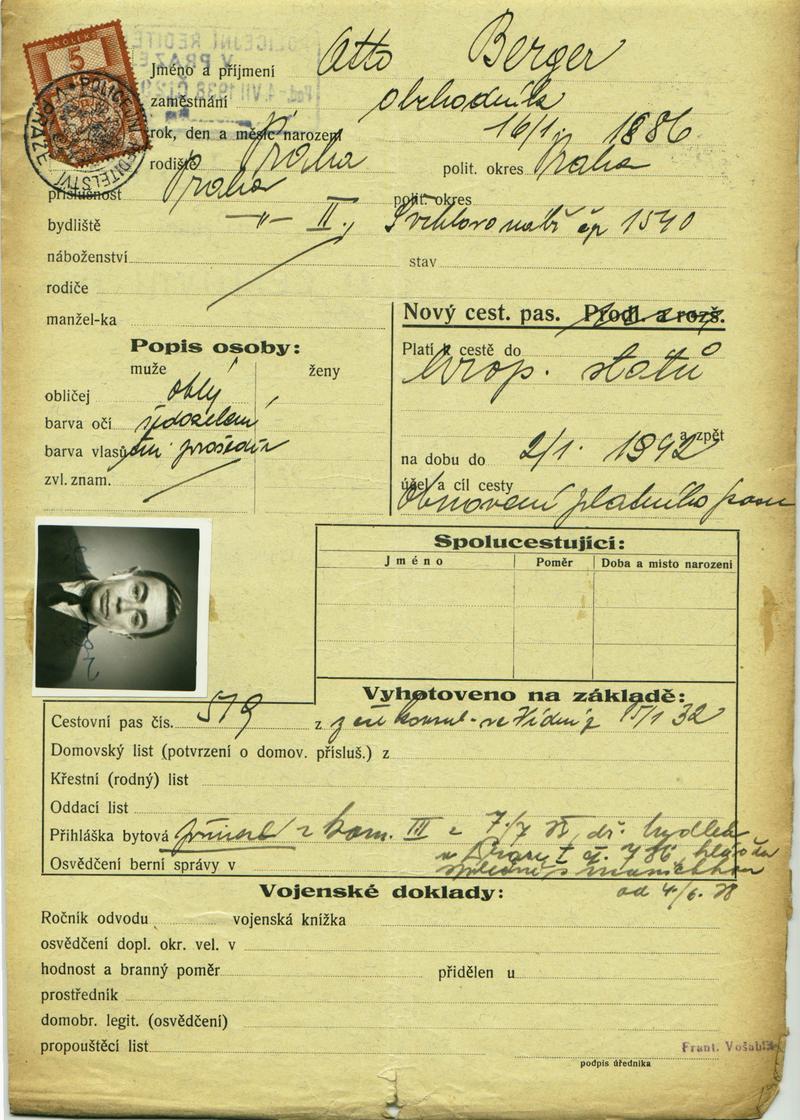 KOLEK
5
POLICEJNÍ ŘEDITELSTVÍ V PRAZE
Jméno a příjmení Otto Berger
zaměstnání obchodník
rok, den a měsíc narození 16/1. 1886
rodiště Praha polit. okres Praha
příslušnost Praha polit. okres
bydliště —〃— II., čp 1540
náboženství stav
rodiče
manžel-ka
Nový cest. pas. Prodl. a rozš.
Popis osoby:
muže ženy
obličej oblý
barva očí šedozelené
barva vlasů prošediv
zvl. znam.
Platí k cestě do
Evrop. států
a zpět
na dobu do 2/1. 1942
účel a cíl cesty
Obnovení platného pasu
Spolucestující:
Jméno Poměr Doba a místo narození
Vyhotoveno na základě:
Cestovní pas čís. 519 z ve Vídni z 15/1 32
Domovský list (potvrzení o domov. přísluš.) z
Křestní (rodný) list
Oddací list
Přihláška bytová z kom. III z 7/7 38, dř. bydlel
v Praze I čp. 786,
Osvědčení berní správy v
od 4/6. 38
Vojenské doklady:
Ročník odvodu vojenská knížka
osvědčení dopl. okr. vel. v
hodnost a branný poměr přidělen u
prostředník
domobr. legit. (osvědčení)
propouštěcí list
Frant.
podpis úředníka